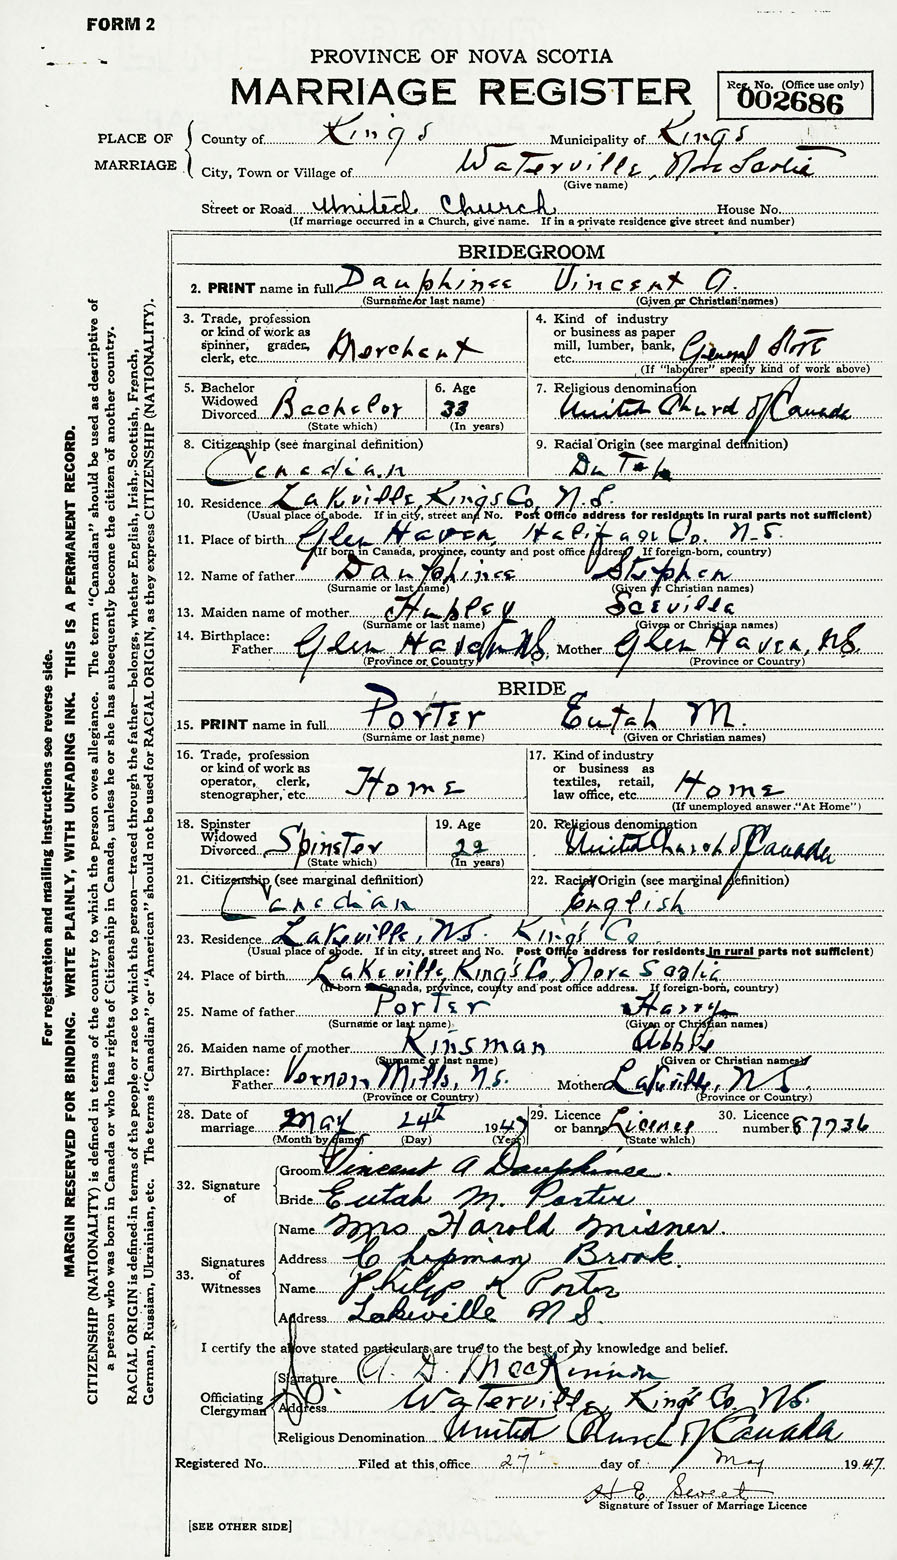 FORM 2
PROVINCE OF NOVA SCOTIA
MARRIAGE REGISTER
Reg. No. (Office use only)
002686
PLACE OF MARRIAGE
County of Kings Municipality of Kings
City, Town or Village of Waterville, Nova Scotia
(Give name)
Street or Road United Church House No.
(If marriage occurred in a Church, give name. If in a private residence give street and number)
BRIDEGROOM
2. PRINT name in full Dauphinee Vincent A.
(Surname or last name) (Given or Christian names)
3. Trade, profession or kind of work as spinner, grader, clerk, etc. Merchant
4. Kind of industry or business as paper mill, lumber, bank, etc. General Store
(If "labourer" specify kind of work above)
5. Bachelor Widowed Divorced Bachelor
(State which)
6. Age 33
(In years)
7. Religious denomination United Church of Canada
8. Citizenship (see marginal definition) Canadian
9. Racial Origin (see marginal definition) Dutch
10. Residence Lakeville, Kings Co, N.S.
(Usual place of abode. If in city, street and No. Post Office address for residents in rural parts not sufficient)
11. Place of birth Glen Haven, Halifax Co. N.S.
(If born in Canada, province, county and post office address. If foreign-born, country)
12. Name of father Dauphinee Stephen
(Surname or last name) (Given or Christian names)
13. Maiden name of mother Hubley
(Surname or last name) (Given or Christian names)
14. Birthplace: Father Glen Haven, N.S. Mother Glen Haven, N.S.
(Province or Country) (Province or Country)
BRIDE
15. PRINT name in full Porter Eutah M.
(Surname or last name) (Given or Christian names)
16. Trade, profession or kind of work as operator, clerk, stenographer, etc. Home
17. Kind of industry or business as textiles, retail, law office, etc. Home
(If unemployed answer "At Home")
18. Spinster Widowed Divorced Spinster
(State which)
19. Age 22
(In years)
20. Religious denomination United Church of Canada
21. Citizenship (see marginal definition) Canadian
22. Racial Origin (see marginal definition) English
23. Residence Lakeville, N.S. King's Co
(Usual place of abode. If in city, street and No. Post Office address for residents in rural parts not sufficient)
24. Place of birth Lakeville, King's Co, Nova Scotia
(If born in Canada, province, county and post office address. If foreign-born, country)
25. Name of father Porter Harry
(Surname or last name) (Given or Christian names)
26. Maiden name of mother Kinsman Abbie
(Surname or last name) (Given or Christian names)
27. Birthplace: Father Vernon Mills, N.S. Mother Lakeville, N.S.
(Province or Country) (Province or Country)
28. Date of marriage May 24th 1947
(Month by name) (Day) (Year)
29. Licence or banns Licence
(State which)
30. Licence number 87736
32. Signature of
Groom Vincent A Dauphinee
Bride Eutah M. Porter
33. Signatures of Witnesses
Name Mrs Harold Misner.
Address Chipman Brook.
Name Philip K Porter
Address Lakeville N S.
I certify the above stated particulars are true to the best of my knowledge and belief.
Officiating Clergyman
Signature A. D. MacKinnon
Address Waterville, King's Co, N.S.
Religious Denomination United Church of Canada
Registered No. Filed at this office 27 day of May 1947
H. E. Sweet
Signature of Issuer of Marriage Licence
[SEE OTHER SIDE]
For registration and mailing instructions see reverse side.
MARGIN RESERVED FOR BINDING. WRITE PLAINLY, WITH UNFADING INK. THIS IS A PERMANENT RECORD.
CITIZENSHIP (NATIONALITY) is defined in terms of the country to which the person owes allegiance. The term "Canadian" should be used as descriptive of
a person who was born in Canada or who has rights of Citizenship in Canada, unless he or she has subsequently become the citizen of another country.
RACIAL ORIGIN is defined in terms of the people or race to which the person—traced through the father—belongs, whether English, Irish, Scottish, French,
German, Russian, Ukrainian, etc. The terms "Canadian" or "American" should not be used for RACIAL ORIGIN, as they express CITIZENSHIP (NATIONALITY).